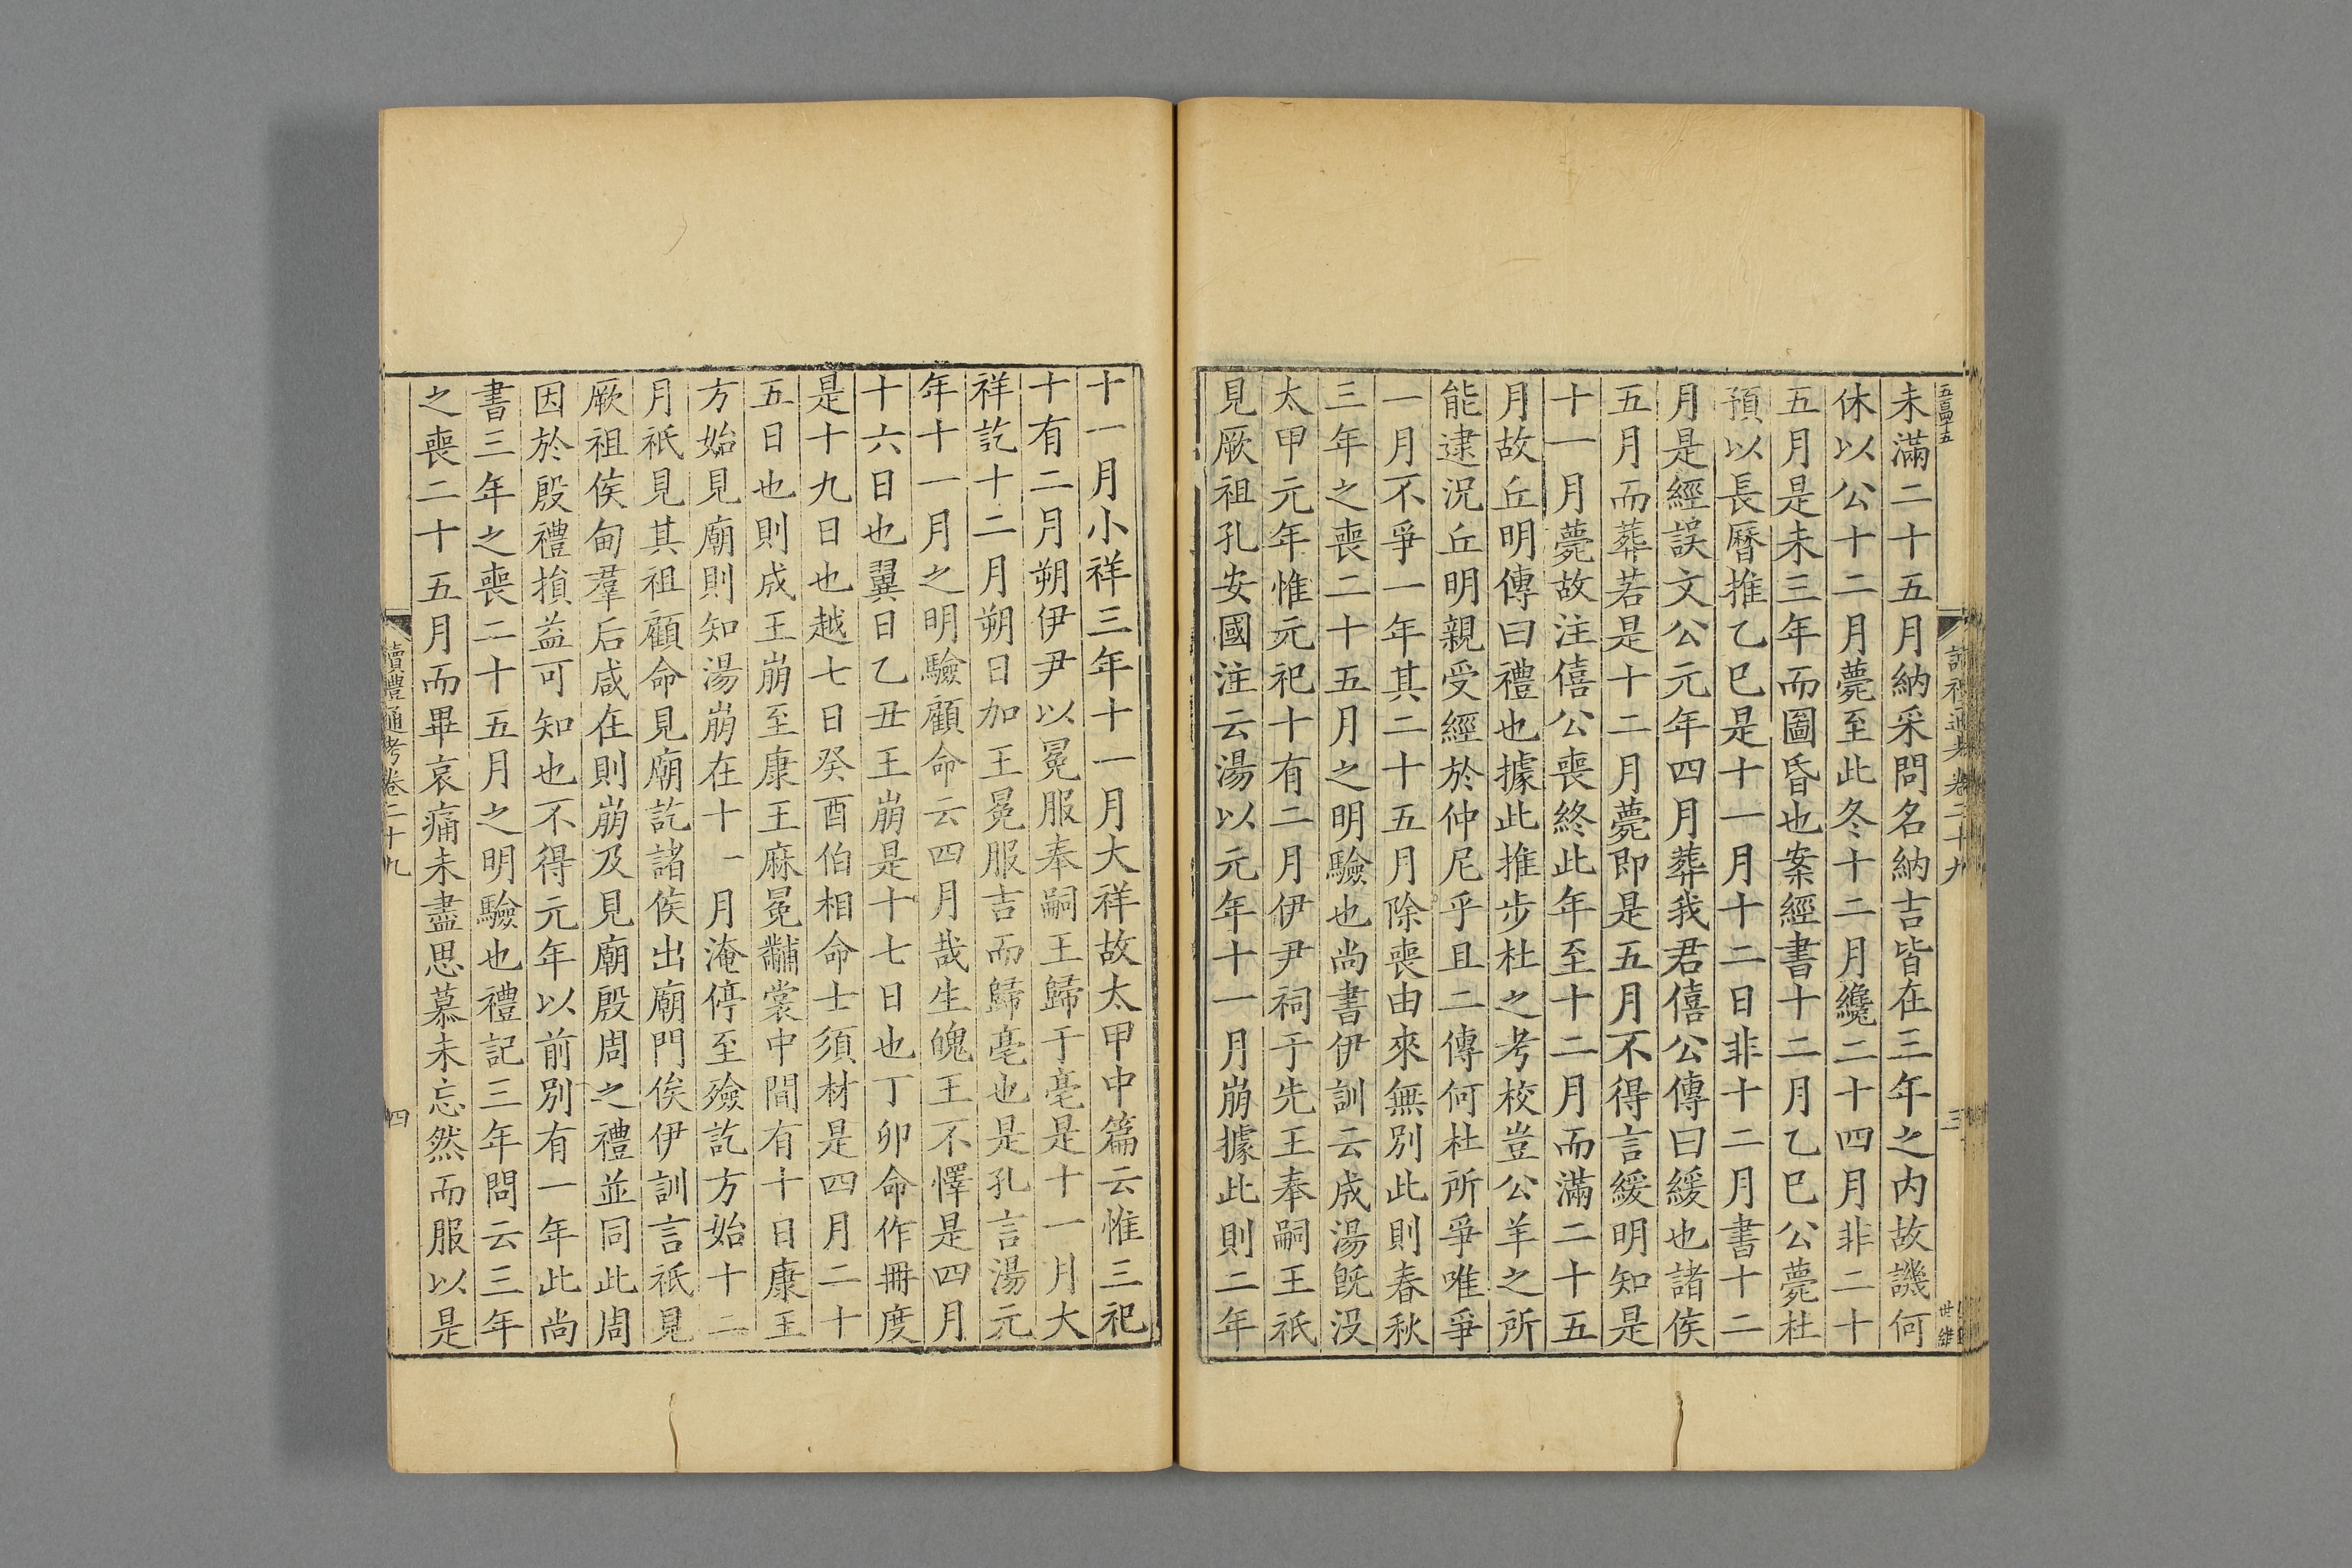 五百四十五
讀禮通考卷二十九
三
世維
未滿二十五月納采問名納吉皆在三年之内故譏何
休以公十二月薨至此冬十二月纔二十四月非二十
五月是未三年而圖昏也案經書十二月乙巳公薨杜
預以長曆推乙巳是十一月十二日非十二月書十二
月是經誤文公元年四月葬我君僖公傳曰緩也諸侯
五月而葬若是十二月薨即是五月不得言緩明知是
十一月薨故注僖公喪終此年至十二月而滿二十五
月故丘明傳曰禮也據此推步杜之考校豈公羊之所
能逮況丘明親受經於仲尼乎且二傳何杜所爭唯爭
一月不爭一年其二十五月除喪由來無別此則春秋
三年之喪二十五月之明驗也尚書伊訓云成湯旣没
太甲元年惟元祀十有二月伊尹祠于先王奉嗣王祇
見厥祖孔安國注云湯以元年十一月崩據此則二年
十一月小祥三年十一月大祥故太甲中篇云惟三祀
十有二月朔伊尹以冕服奉嗣王歸于亳是十一月大
祥訖十二月朔日加王冕服吉而歸亳也是孔言湯元
年十一月之明驗顧命云四月哉生魄王不懌是四月
十六日也翼日乙丑王崩是十七日也丁卯命作冊度
是十九日也越七日癸酉伯相命士須材是四月二十
五日也則成王崩至康王麻冕黼裳中間有十日康王
方始見廟則知湯崩在十一月淹停至殮訖方始十二
月祇見其祖顧命見廟訖諸侯出廟門俟伊訓言祇見
厥祖侯甸羣后咸在則崩及見廟殷周之禮並同此周
因於殷禮損益可知也不得元年以前別有一年此尚
書三年之喪二十五月之明驗也禮記三年問云三年
之喪二十五月而畢哀痛未盡思慕未忘然而服以是
讀禮通考卷二十九
四